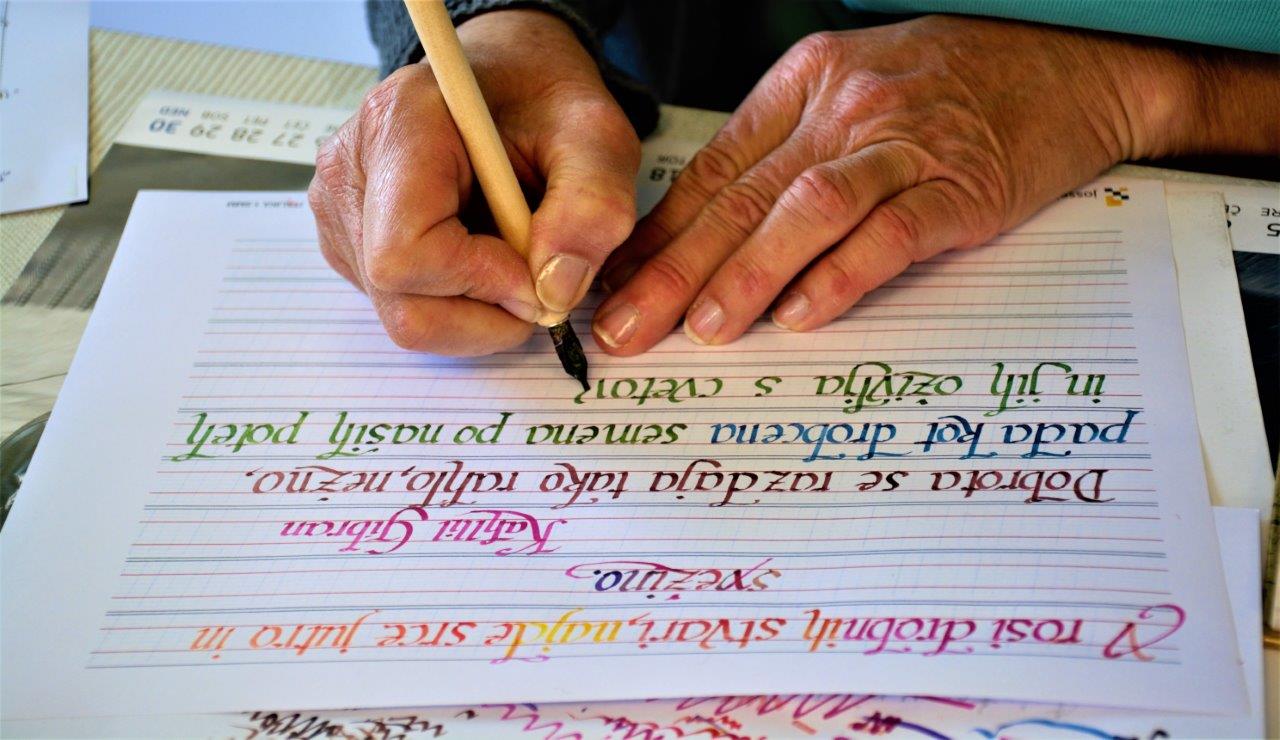 V rosi drobnih stvari, najde srce jutro in
svežino.
Kahlil Gibran
Dobrota se razdaja tako rahlo, nežno,
pada kot drobcena semena po naših poteh
in jih oživlja s
PET SOB NED
27 28 29 30
TOR
18